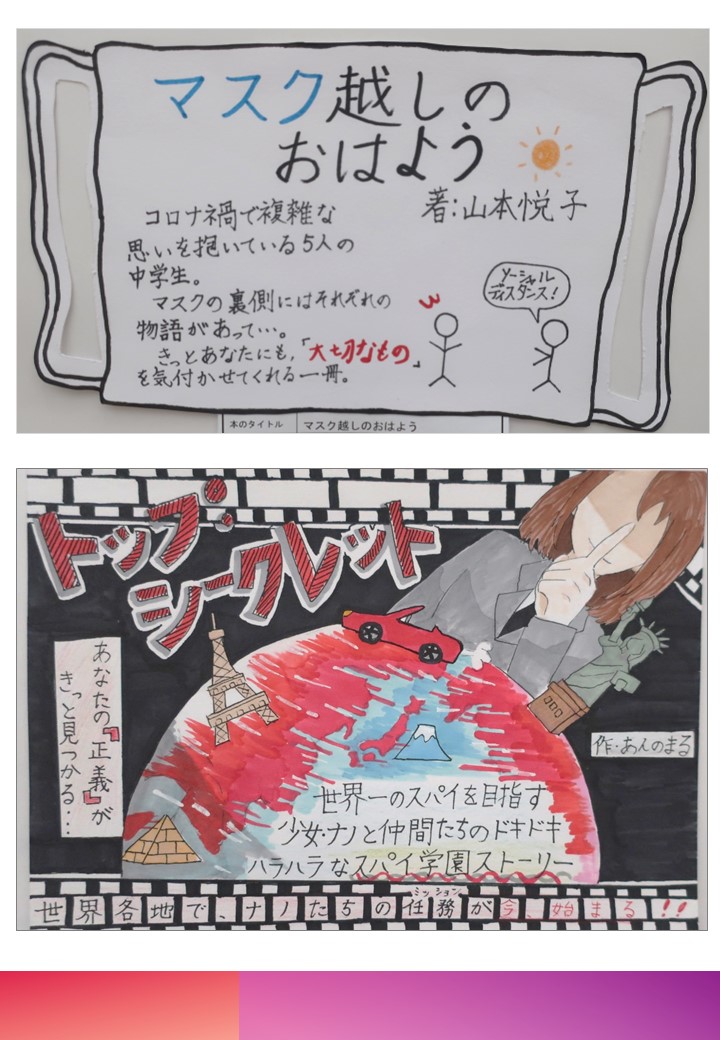 マスク越しの
おはよう
著:山本悦子
コロナ禍で複雑な
思いを抱いている5人の
中学生。
マスクの裏側にはそれぞれの
物語があって…。
きっとあなたにも,「大切なもの」
を気付かせてくれる一冊。
ソーシャル
ディスタンス!
本のタイトル マスク越しのおはよう
トップ・
シークレット
あなたの『正義』が
きっと見つかる...
作・あんのまる
世界一のスパイを目指す
少女・ナノと仲間たちのドキドキ
ハラハラなスパイ学園ストーリー
ミッション
世界各地で、ナノたちの任務が今、始まる!!